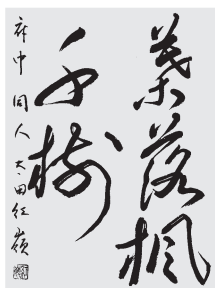 葉落楓
千樹
府中 同人 太田紅嶺